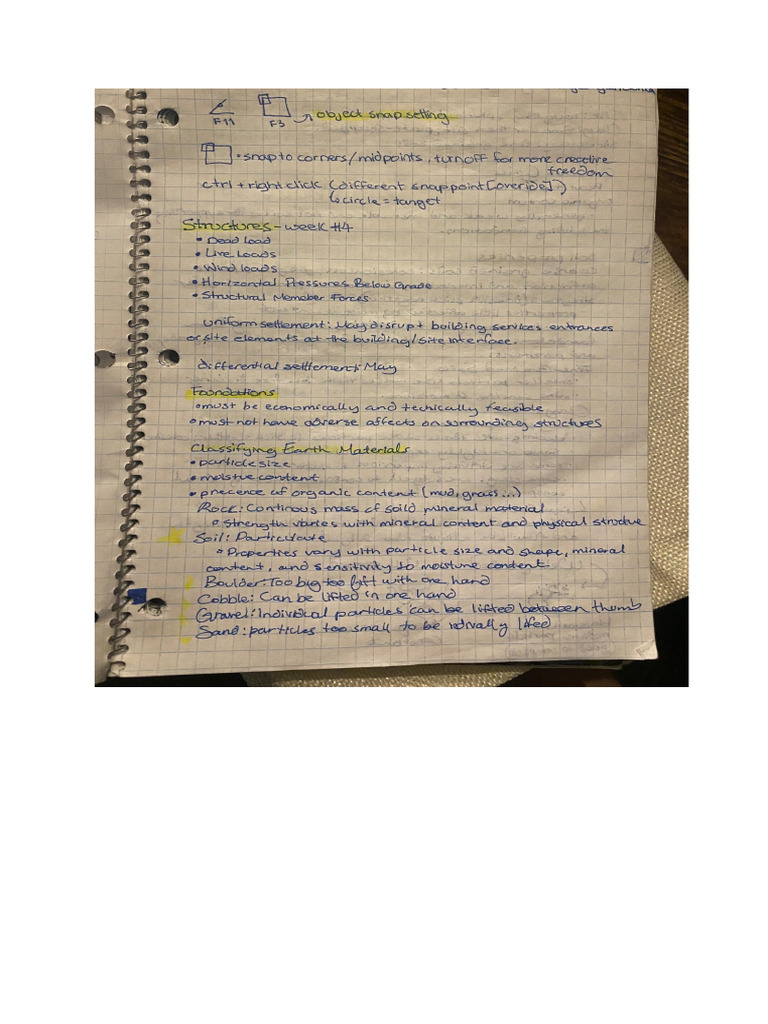 F11 F3 object snap setting
• snap to corners/midpoints, turn off for more creative
freedom
ctrl + right click (different snap point [overide])
↳ circle = tanget
Structures - week #4
• Dead Load
• Live Loads
• Wind loads
• Horizontal Pressures Below Grade
• Structural Memeber Forces
uniform settlement: May disrupt building services entrances
or site elements at the building/site interface.
differential settlement: May
Foundations
• must be economically and techically feasible
• must not have adverse affects on surrounding structures
Classifying Earth Materials
• particle size
• moistue content
• precence of organic content (mud, grass...)
Rock: Continous mass of soild mineral material
° Strength varies with mineral content and physical structue
Soil: Particulate
° Properties vary with particle size and shape, mineral
content, and sensitivity to moisture content.
Boulder: Too big too lift with one hand
Cobble: Can be lifted in one hand
Gravel: Individal particles can be lifted between thumb
Sand: particles too small to be